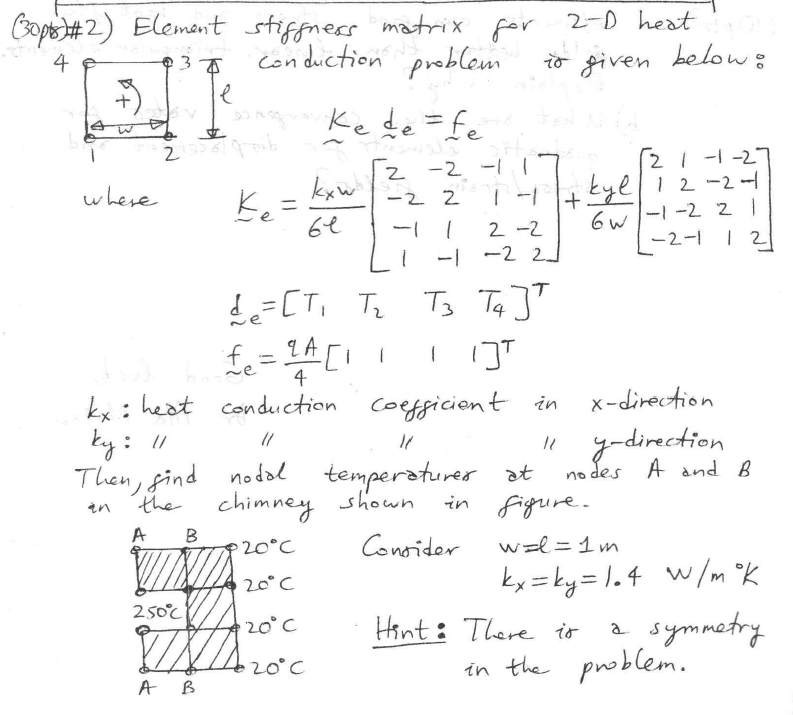 (30pts)#2) Element stiffness matrix for 2-D heat
conduction problem is given below:
4 3 l
+
w
1 2
Ke de = fe
where Ke = kxw/6l [2 -2 -1 1
-2 2 1 -1
-1 1 2 -2
1 -1 -2 2] + kyl/6w [2 1 -1 -2
1 2 -2 -1
-1 -2 2 1
-2 -1 1 2]
de = [T1 T2 T3 T4]T
fe = qA/4 [1 1 1 1]T
kx : heat conduction coefficient in x-direction
ky : " " " " y-direction
Then, find nodal temperatures at nodes A and B
in the chimney shown in figure.
A B 20°C
20°C
250°C
20°C
20°C
A B
Consider w=l=1m
kx=ky=1.4 W/m°K
Hint: There is a symmetry
in the problem.